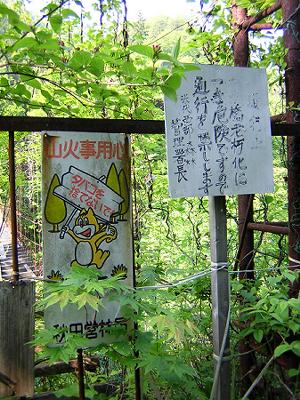 山火事用心
タバコを
捨てないで
秋田営林局
橋老朽化に
つき危険ですので
通行を禁止します
管理署長